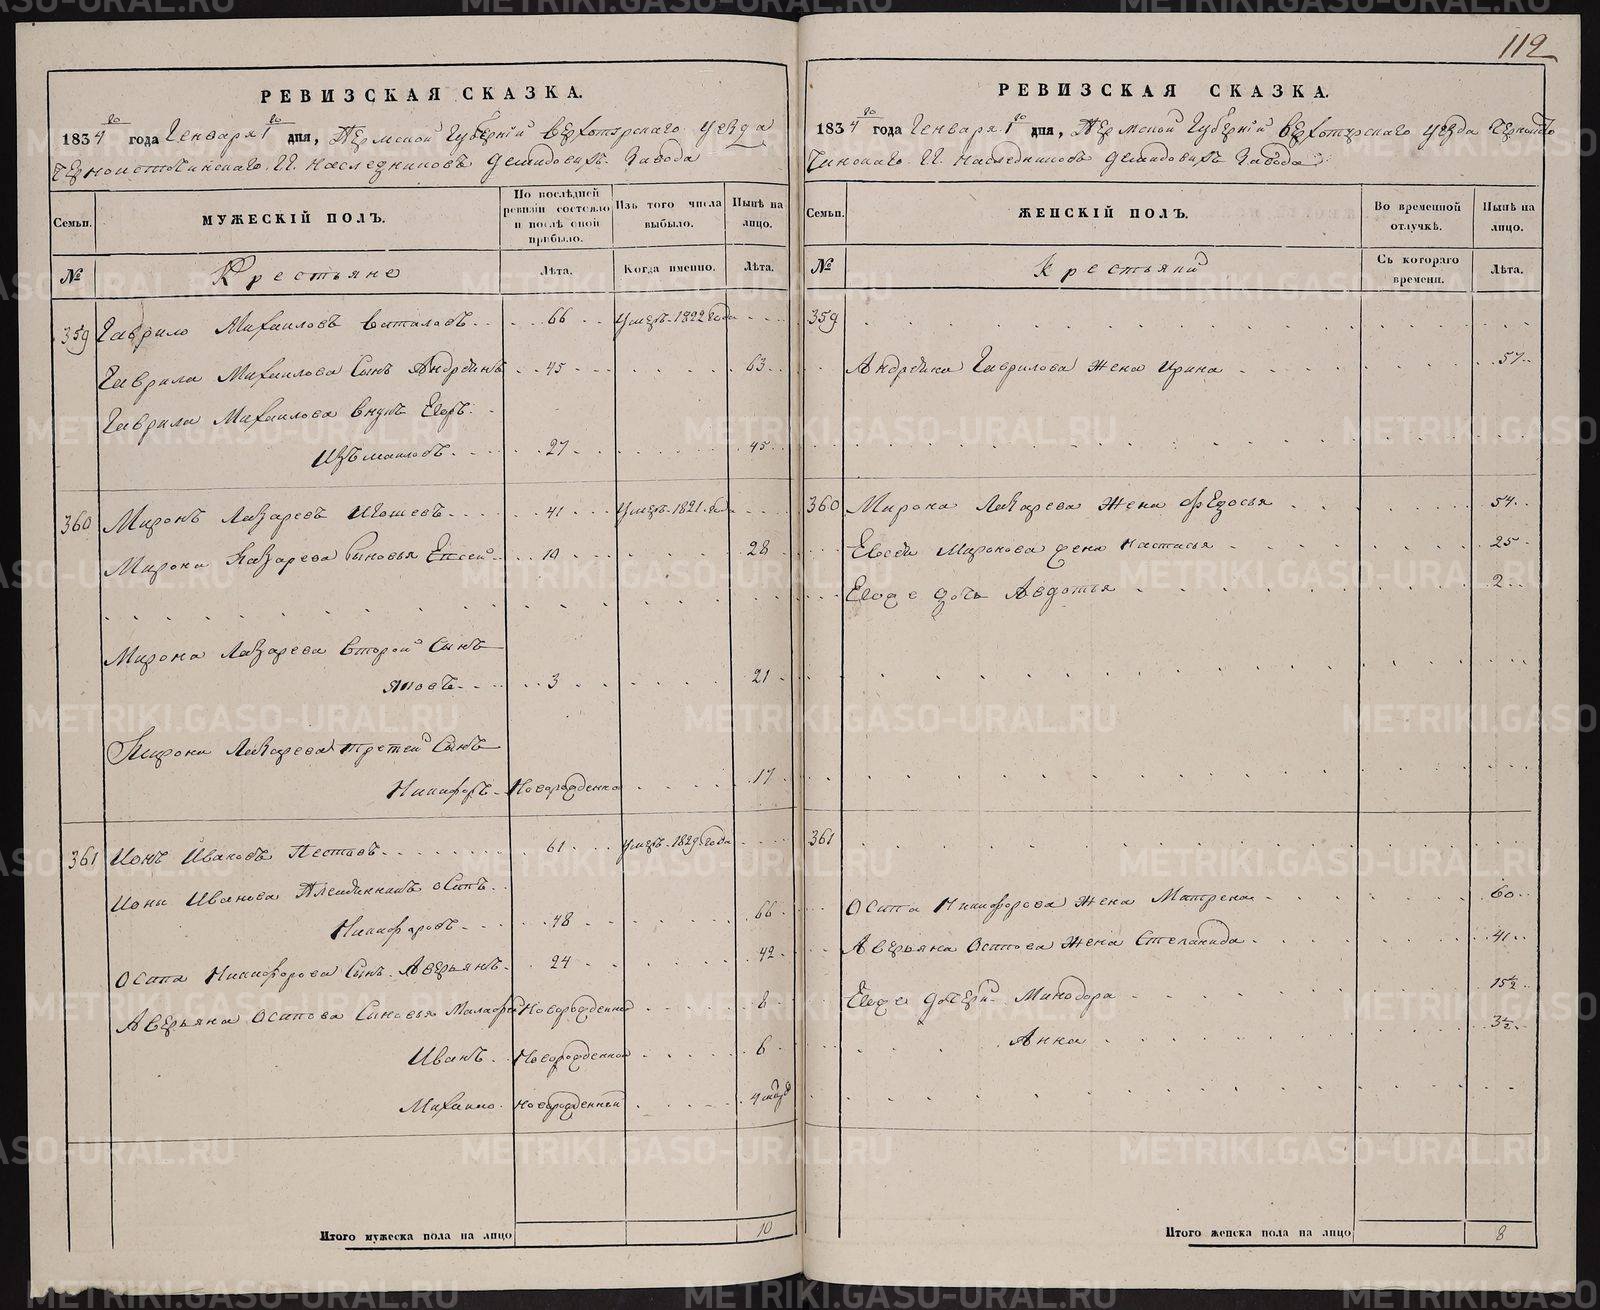 112
РЕВИЗСКАЯ СКАЗКА.
1834го года Генваря 1го дня, Пермской Губернїи Верхотурскаго уезда
Черноисточинскаго Г.Г. Наследниковъ Демидовыхъ Завода
Семьи.
МУЖЕСКІЙ ПОЛЪ.
По послѣдней ревизіи состояло и послѣ оной прибыло.
Изъ того числа выбыло.
Нынѣ на лицо.
№
Крестьяне
Лѣта.
Когда именно.
Лѣта.
359 Гаврило Михаиловъ 66 Умеръ 1822 года
Гаврила Михаилова Сынъ Андреянъ 45 63
Гаврила Михаилова внукъ Егоръ
Измаиловъ 27 45
360 Миронъ Лазаревъ 41 Умеръ 1821
Мирона Лазарева Сыновья Евсей 10 28
Мирона Лазарева второй Сынъ
Яковъ 3 21
Мирона Лазарева третей Сынъ
Никифоръ Новорожденной 17
361 Ионъ Ивановъ Пестовъ 61 Умеръ 1829 года
Иона Иванова Племянникъ Осипъ
Никифоровъ 48 66
Осипа Никифорова Сынъ Аверьянъ 24 42
Аверьяна Осипова Сыновья Малафей Новорожденной 8
Иванъ Новорожденной 6
Михаило Новорожденной
Итого мужеска пола на лицо 10
РЕВИЗСКАЯ СКАЗКА.
1834го года Генваря 1го дня, Пермской Губернїи Верхотурскаго уезда Черноисто
чинскаго Г.Г. Наследниковъ Демидовыхъ Завода
Семьи.
ЖЕНСКІЙ ПОЛЪ.
Во временной отлучкѣ.
Нынѣ на лицо.
№
Крестьяни
Съ котораго времени.
Лѣта.
359
Андреяна Гаврилова жена Ирина 57
360 Мирона Лазарева жена Федосья 54
Евсея Миронова жена Настасья 25
Ево же дочь Авдотья 2
361
Осипа Никифорова жена Матрена 60
Аверьяна Осипова жена Степанида 41
Ево же дочери Минодора 15½
Анна 3½
Итого женска пола на лицо 8
METRIKI.GASO-URAL.RU